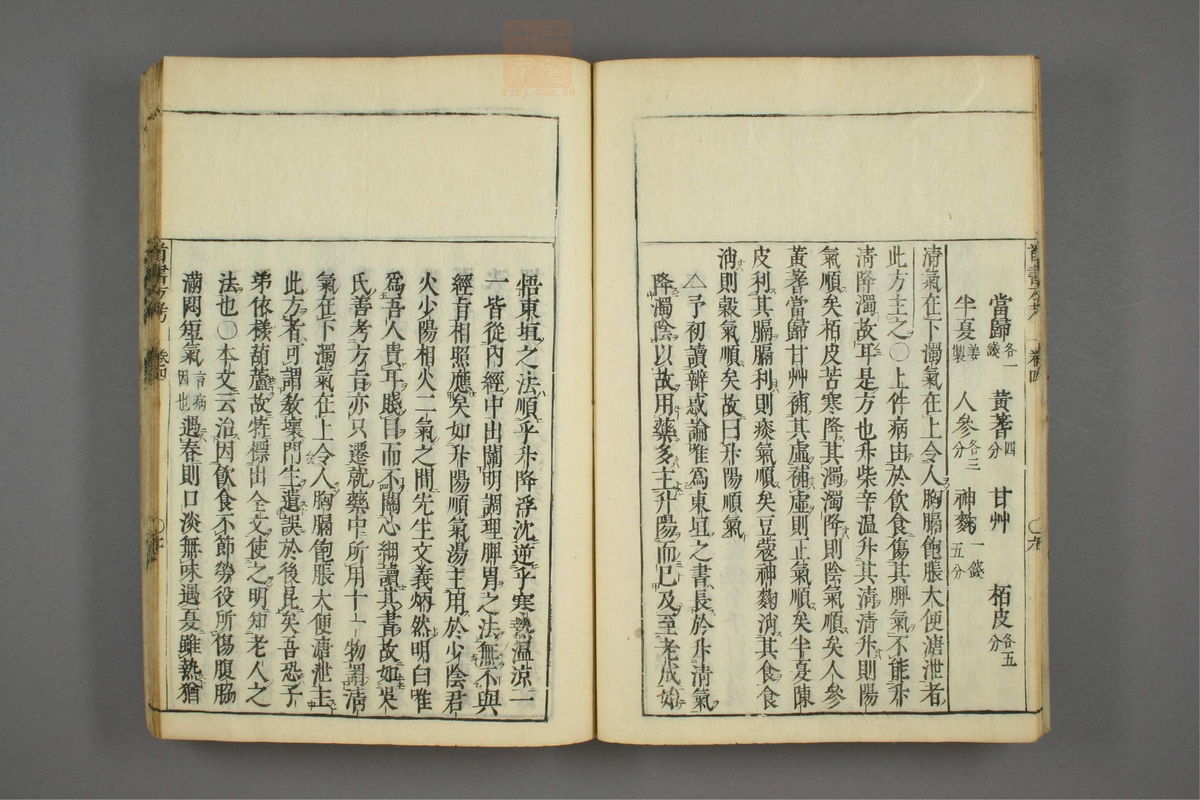 當歸各一錢 黃耆四分 甘艸 栢皮各五分
半夏姜製 人參各三分 神麴一錢五分
淸氣在下濁氣在上令人胸膈飽脹大便溏泄者
此方主之〇上件病由於飮食傷其脾氣不能升
淸降濁故耳是方也升柴辛溫升其淸淸升則陽
氣順矣栢皮苦寒降其濁濁降則陰氣順矣人參
黃耆當歸甘艸補其虛補虛則正氣順矣半夏陳
皮利其膈膈利則痰氣順矣豆蔻神麴消其食食
消則穀氣順矣故曰升陽順氣
△予初讀辨惑論唯爲東垣之書長於升淸氣
降濁陰以故用藥多主升陽而已及至老成始
悟東垣之法順乎升降浮沈逆乎寒熱溫涼一
一皆從內經中出闡明調理脾胃之法無不與
經旨相照應矣如升陽順氣湯主用於少陰君
火少陽相火二氣之間先生文義炳然明白唯
爲吾人貴耳賤目而不關心細讀其書故如吳
氏善考方旨亦只遷就藥中所用十一物畧淸
氣在下濁氣在上令人胸膈飽脹大便溏泄主
此方者可謂敎壞門生遺誤於後昆矣吾恐子
弟依樣葫蘆故特標出全文使之明知老人之
法也〇本文云治因飮食不節勞役所傷腹脇
滿悶短氣言病因也遇春則口淡無味遇夏雖熱猶
首書方考 卷四
zysj.com.cn